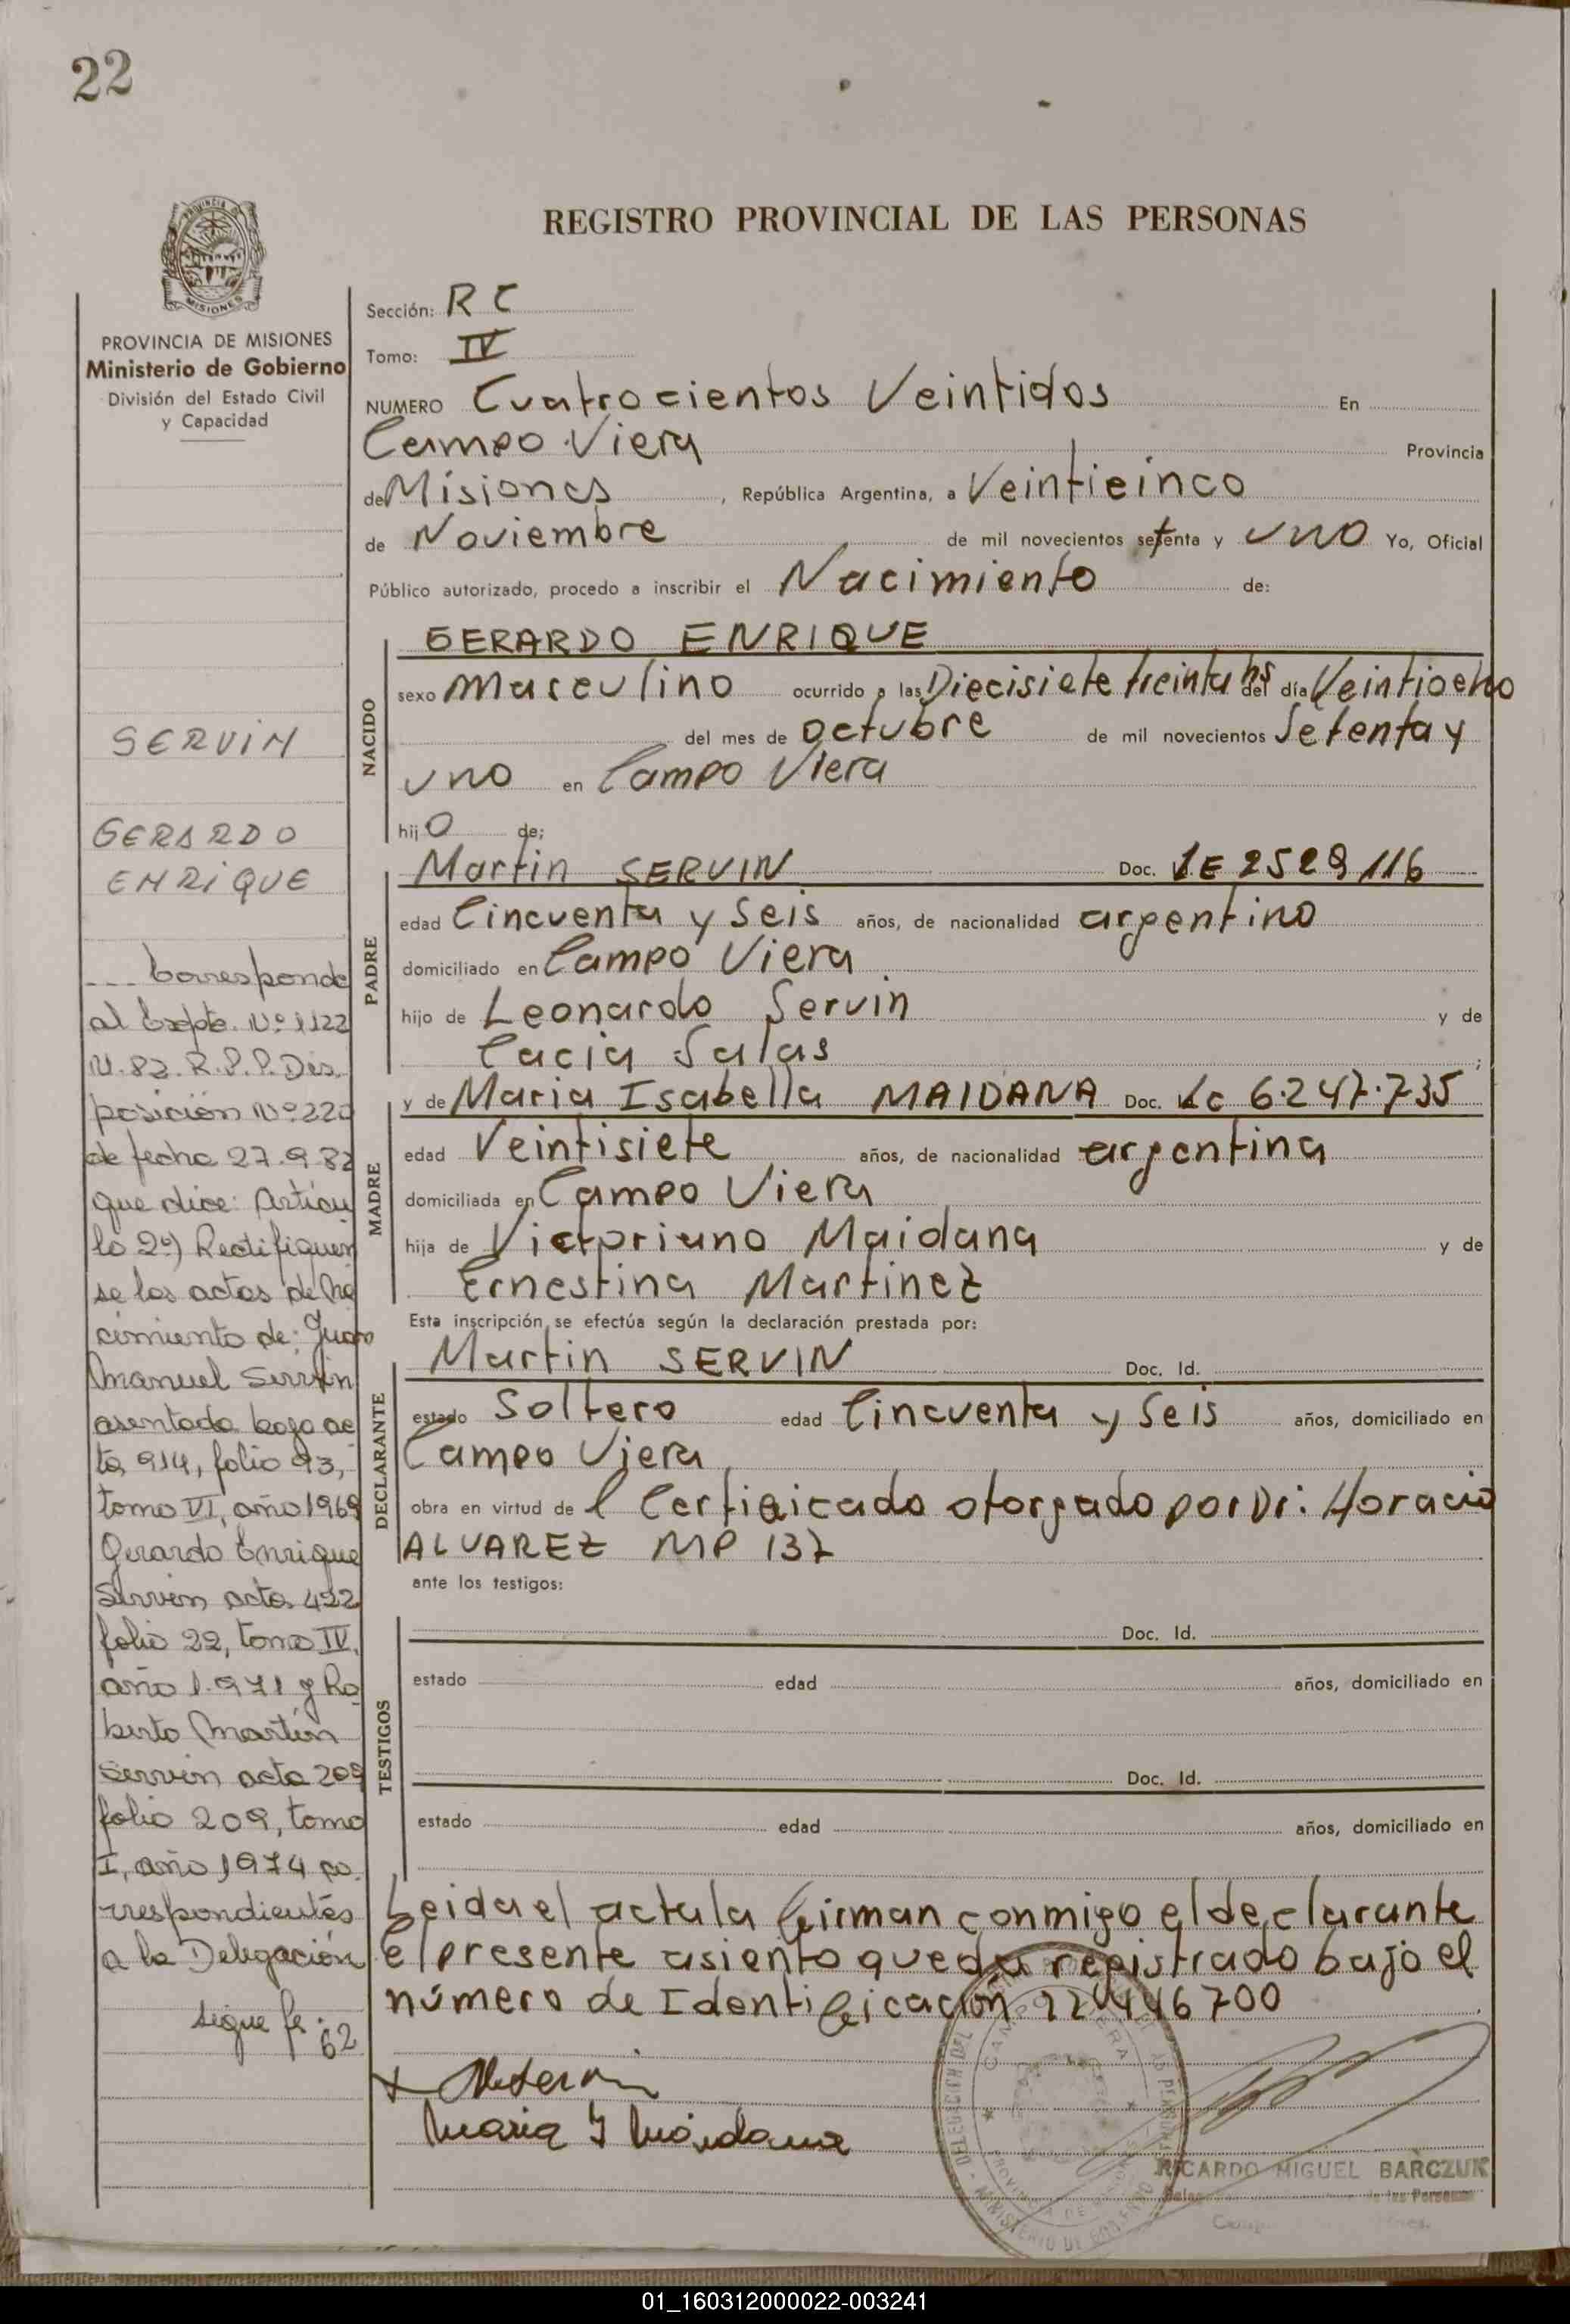 22
REGISTRO PROVINCIAL DE LAS PERSONAS
PROVINCIA DE MISIONES
Ministerio de Gobierno
División del Estado Civil
y Capacidad
SERVIN
GERARDO
ENRIQUE
--- Corresponde
al Expte. Nº 1122
N.82.R.P.P. Dis
posición Nº 220
de fecha 27.9.82
que dice: Artícu
lo 2º) Rectifiquen
se las actas de Na
cimiento de: Juan
Manuel Servin
asentada bajo ac
ta 914, folio 93,
tomo VI, año 1969
Gerardo Enrique
Servin acta 422
folio 22, tomo IV,
año 1.971 y Ro
berto Martin
Servin acta 209
folio 209, tomo
I, año 1974 co
rrespondientes
a la Delegación
sigue fº.
62
Sección: R C
Tomo: IV
NUMERO Cuatrocientos Veintidos En
Campo Viera Provincia
de Misiones, República Argentina, a Veinticinco
de Noviembre de mil novecientos setenta y uno Yo, Oficial
Público autorizado, procedo a inscribir el Nacimiento de:
NACIDO
GERARDO ENRIQUE
sexo masculino ocurrido a las Diecisiete treinta hs del día Veintiocho
del mes de octubre de mil novecientos Setenta y
uno en Campo Viera
hijo de;
PADRE
Martin SERVIN Doc. LE 2529116
edad Cincuenta y Seis años, de nacionalidad argentino
domiciliado en Campo Viera
hijo de Leonardo Servin y de
Cacia Salas ;
MADRE
y de Maria Isabella MAIDANA Doc. LC 6.247.735
edad Veintisiete años, de nacionalidad argentina
domiciliada en Campo Viera
hija de Victoriano Maidana y de
Ernestina Martinez
Esta inscripción se efectúa según la declaración prestada por:
DECLARANTE
Martin SERVIN Doc. Id.
estado Soltero edad Cincuenta y Seis años, domiciliado en
Campo Viera
obra en virtud de l Certificado otorgado por Dr: Horacio
ALVAREZ MP 137
ante los testigos:
TESTIGOS
Doc. Id.
estado edad años, domiciliado en
Doc. Id.
estado edad años, domiciliado en
Leida el acta la firman conmigo el declarante
el presente asiento queda registrado bajo el
número de Identificación 22446700
Maria I Maidana
RICARDO MIGUEL BARCZUK
01_160312000022-003241